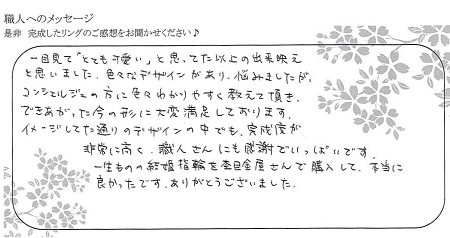 職人へのメッセージ
是非 完成したリングのご感想をお聞かせください♪
一目見て「とても可愛い」と思ってた以上の出来映え
と思いました。色々なデザインがあり、悩みましたが、
コンシェルジュの方に色々わかりやすく教えて頂き、
できあがった今の形に大変満足しております。
イメージしてた通りのデザインの中でも、完成度が
非常に高く、職人さんにも感謝でいっぱいです。
一生ものの結婚指輪を杢目金屋さんで購入して、本当に
良かったです。ありがとうございました。